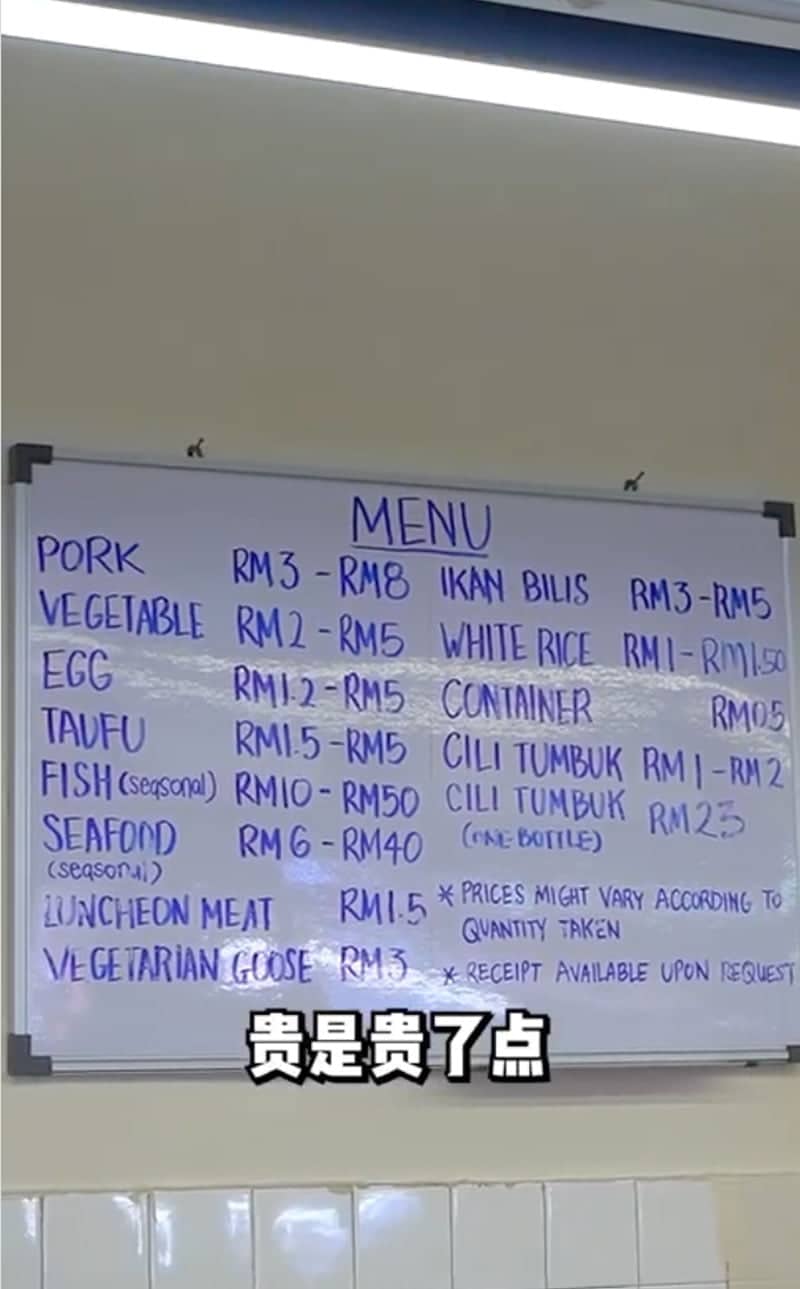 MENU
PORK RM3 - RM8
VEGETABLE RM2 - RM5
EGG RM1.2 - RM5
TAUFU RM1.5 - RM5
FISH (seasonal) RM10 - RM50
SEAFOOD RM6 - RM40
(seasonal)
LUNCHEON MEAT RM1.5
VEGETARIAN GOOSE RM3
IKAN BILIS RM3 - RM5
WHITE RICE RM1 - RM1.50
CONTAINER RM0.5
CILI TUMBUK RM1 - RM2
CILI TUMBUK RM23
(ONE BOTTLE)
* PRICES MIGHT VARY ACCORDING TO
QUANTITY TAKEN
* RECEIPT AVAILABLE UPON REQUEST
贵是贵了点